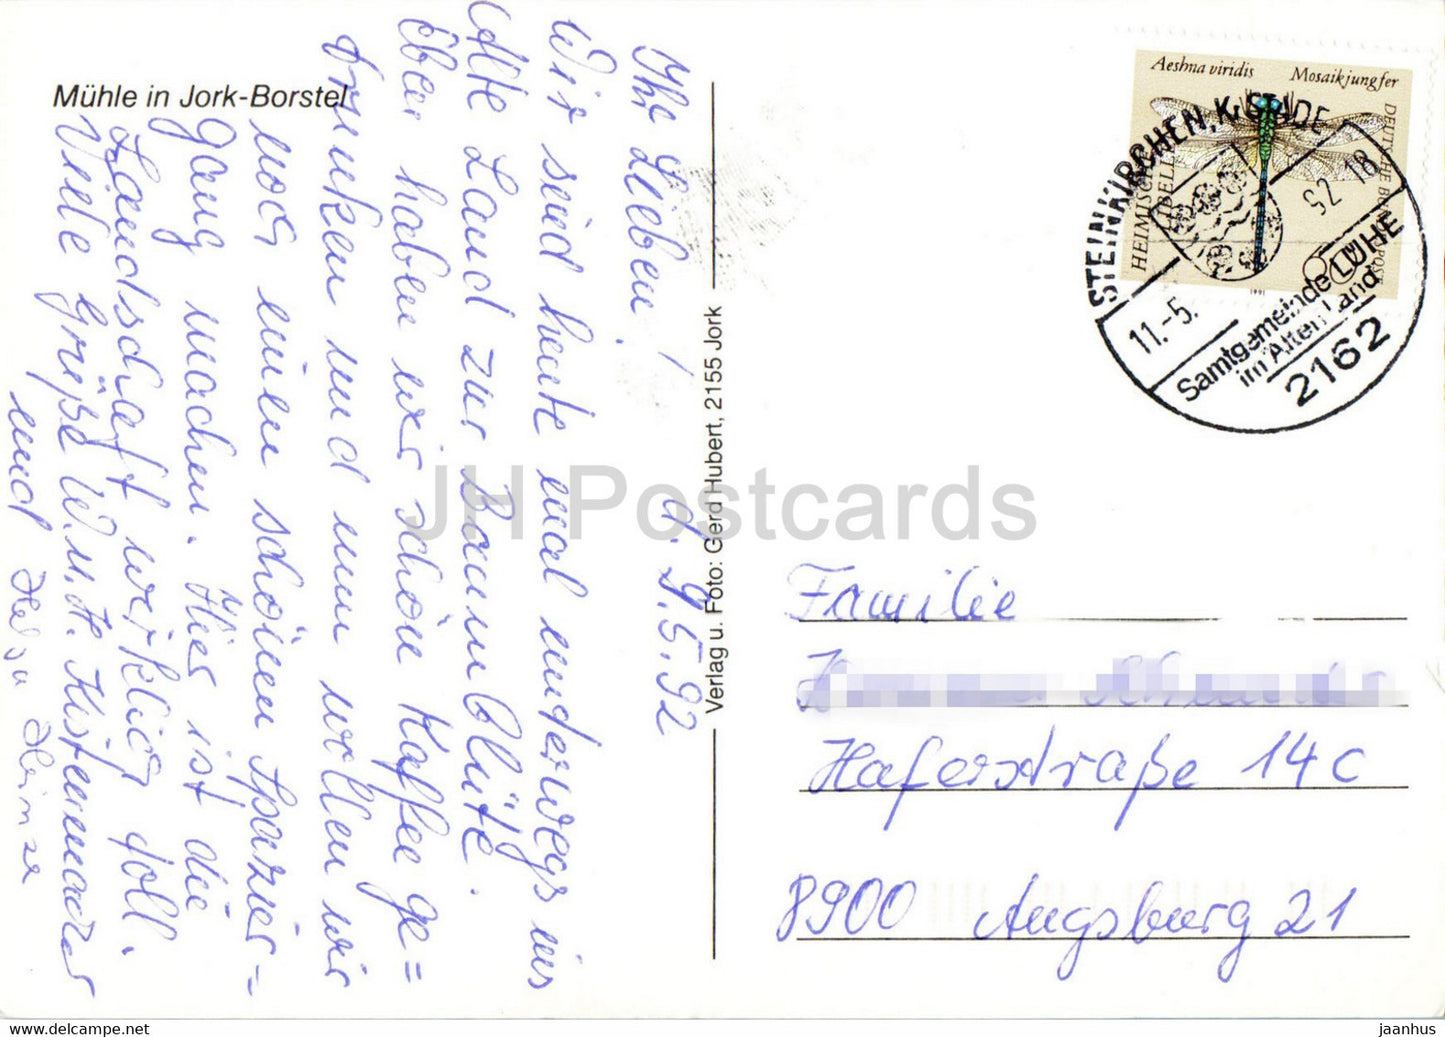 Mühle in Jork-Borstel
d. 9.5.92
Ihr Lieben!
Wir sind heute mal unterwegs ins
Alte Land zur Baumblüte.
Eben haben wir schön Kaffee ge=
trunken und nun wollen wir
noch einen schönen Spazier-
gang machen. Hier ist die
Landschaft wirklich toll.
Viele Grüße W. u. H.
und
Verlag u. Foto: Gerd Hubert, 2155 Jork
Aeshna viridis Mosaikjungfer
DEUTSCHE BUNDESPOST
HEIMISCHE LIBELLEN
1991
STEINKIRCHEN, K. STADE
11.-5. 92 18
Samtgemeinde LÜHE
im Alten Land
2162
Familie
Haferstraße 14c
8900 Augsburg 21
JH Postcards
www.delcampe.net
jaanhus